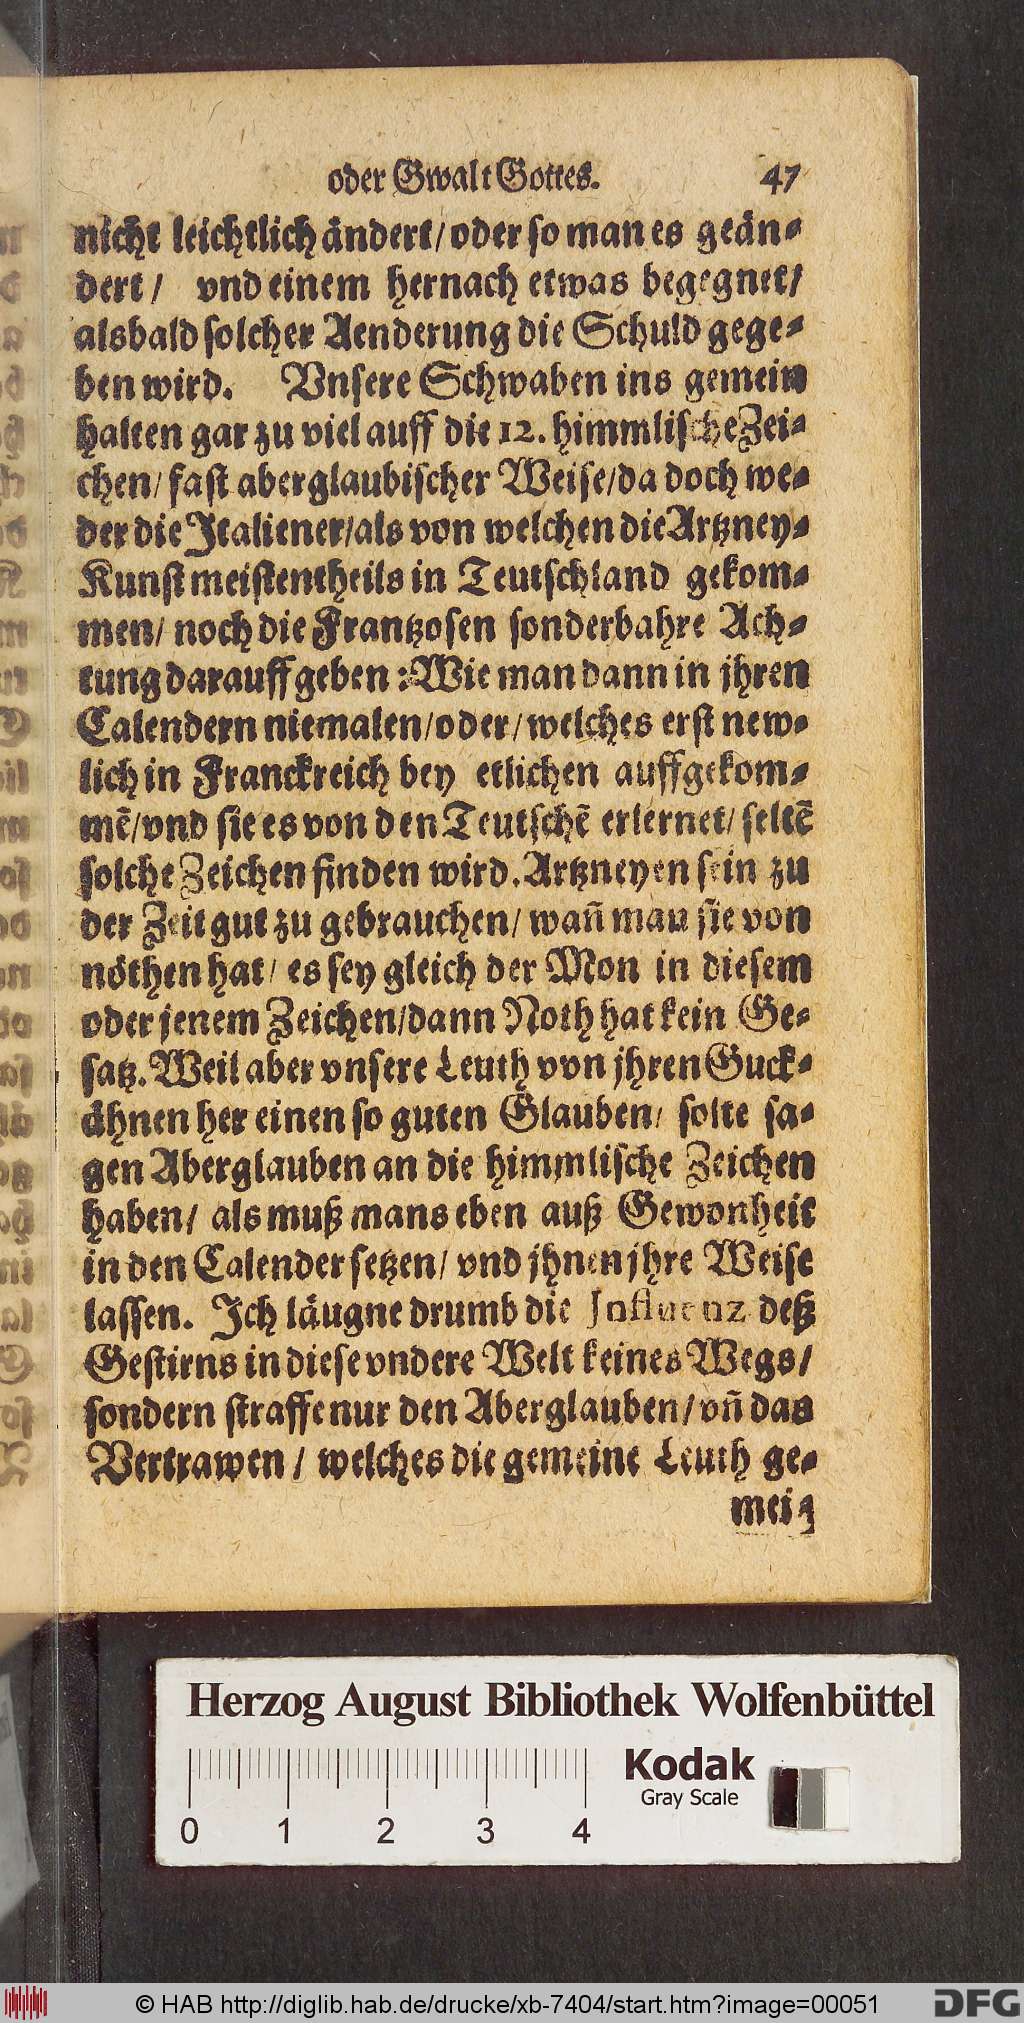 oder Gwalt Gottes. 47
nicht leichtlich ändert/ oder so man es geän-
dert/ vnd einem hernach etwas begegnet/
alsbald solcher Aenderung die Schuld gege-
ben wird. Vnsere Schwaben ins gemein
halten gar zu viel auff die 12. himmlische Zei-
chen/ fast aberglaubischer Weise/ da doch we-
der die Italiener/ als von welchen die Artzney-
Kunst meistentheils in Teutschland gekom-
men/ noch die Frantzosen sonderbahre Ach-
tung darauff geben: Wie man dann in jhren
Calendern niemalen/ oder/ welches erst new-
lich in Franckreich bey etlichen auffgekom-
mẽ/ vnd sie es von den Teutschẽ erlernet/ seltẽ
solche Zeichen finden wird. Artzneyen sein zu
der Zeit gut zu gebrauchen/ wañ man sie von
nöthen hat/ es sey gleich der Mon in diesem
oder jenem Zeichen/ dann Noth hat kein Ge-
satz. Weil aber vnsere Leuth von jhren Guck-
ähnen her einen so guten Glauben/ solte sa-
gen Aberglauben an die himmlische Zeichen
haben/ als muß mans eben auß Gewonheit
in den Calender setzen/ vnd jhnen jhre Weise
lassen. Ich läugne drumb die Influenz deß
Gestirns in diese vndere Welt keines Wegs/
sondern straffe nur den Aberglauben/ vñ das
Vertrawen/ welches die gemeine Leuth ge-
mei-
Herzog August Bibliothek Wolfenbüttel
Kodak
Gray Scale
0 1 2 3 4
© HAB http://diglib.hab.de/drucke/xb-7404/start.htm?image=00051
DFG